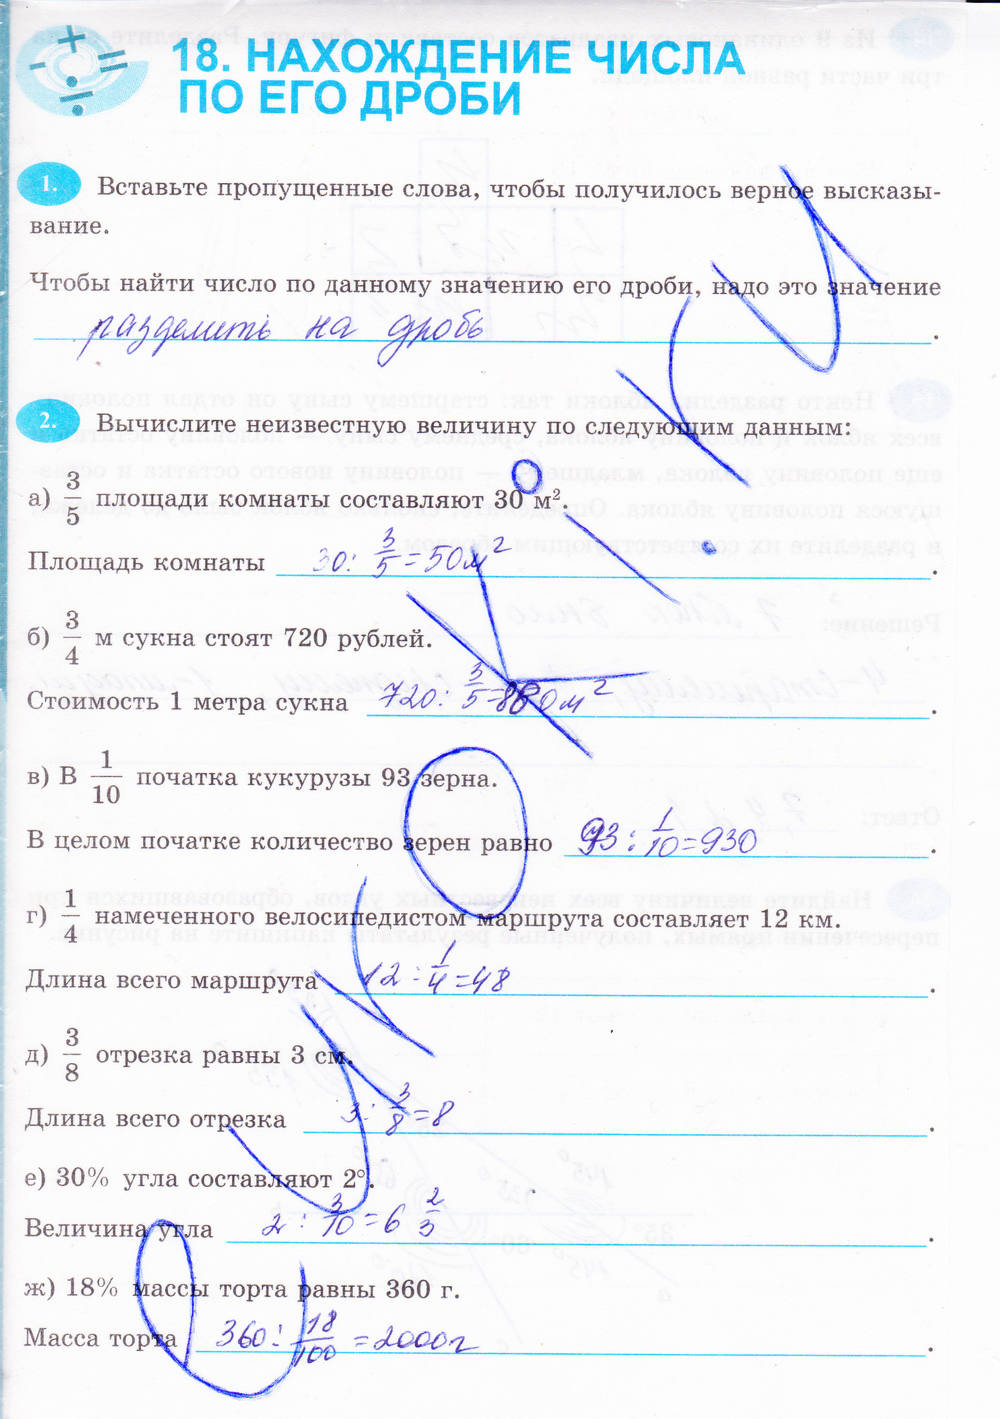 18. НАХОЖДЕНИЕ ЧИСЛА
ПО ЕГО ДРОБИ
1. Вставьте пропущенные слова, чтобы получилось верное высказы-
вание.
Чтобы найти число по данному значению его дроби, надо это значение
разделить на дробь.
2. Вычислите неизвестную величину по следующим данным:
а) 3/5 площади комнаты составляют 30 м².
Площадь комнаты 30 : 3/5 = 50 м².
б) 3/4 м сукна стоят 720 рублей.
Стоимость 1 метра сукна 720 : 3/5 = 0 м².
в) В 1/10 початка кукурузы 93 зерна.
В целом початке количество зерен равно 93 : 1/10 = 930.
г) 1/4 намеченного велосипедистом маршрута составляет 12 км.
Длина всего маршрута 12 : 1/4 = 48.
д) 3/8 отрезка равны 3 см.
Длина всего отрезка 3 : 3/8 = 8.
е) 30% угла составляют 2°.
Величина угла 2 : 3/10 = 6 2/3.
ж) 18% массы торта равны 360 г.
Масса торта 360 : 18/100 = 2000 г.